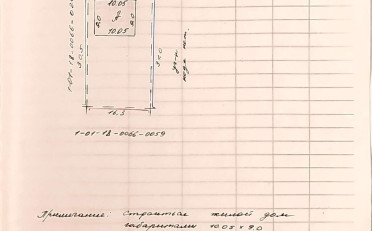 10.05
9.0 А 9.0
10.05
1-01-18-0066-00
30.5
30.0
16.5
1-01-18-0066-0059
Примечание. Строится жилой дом
габаритами 10.05 х 9.0